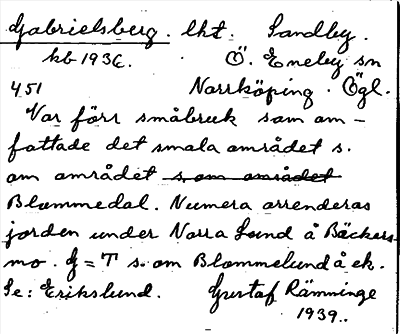 Gabrielsberg. lht. Sandby.
hb 1936. Ö. Eneby sn
451 Norrköping. Ögl.
Var förr småbruk som om-
fattade det smala området s.
om området s. om området
Blommedal. Numera arrenderas
jorden under Norra Sund å Bäckers-
mo. G = T s. om Blommelund å ek.
Se: Erikslund. Gustaf Rämninge
1939.